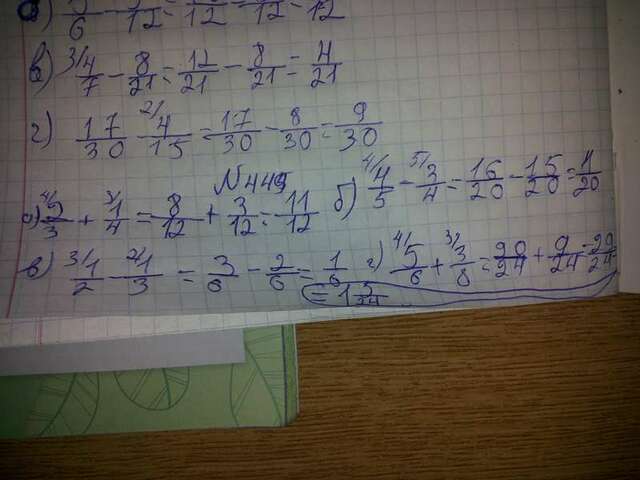 5/6 - /12 = /12 - /12 = /12
в) ³⁄4/7 - 8/21 = 12/21 - 8/21 = 4/21
г) 17/30 - ²⁄4/15 = 17/30 - 8/30 = 9/30
N 449
а) ⁴⁄2/3 + ³⁄1/4 = 8/12 + 3/12 = 11/12 б) ⁴⁄4/5 - ⁵⁄3/4 = 16/20 - 15/20 = 1/20
в) ³⁄1/2 - ²⁄1/3 = 3/6 - 2/6 = 1/6 г) ⁴⁄5/6 + ³⁄3/8 = 20/24 + 9/24 = 29/24
= 1 5/24